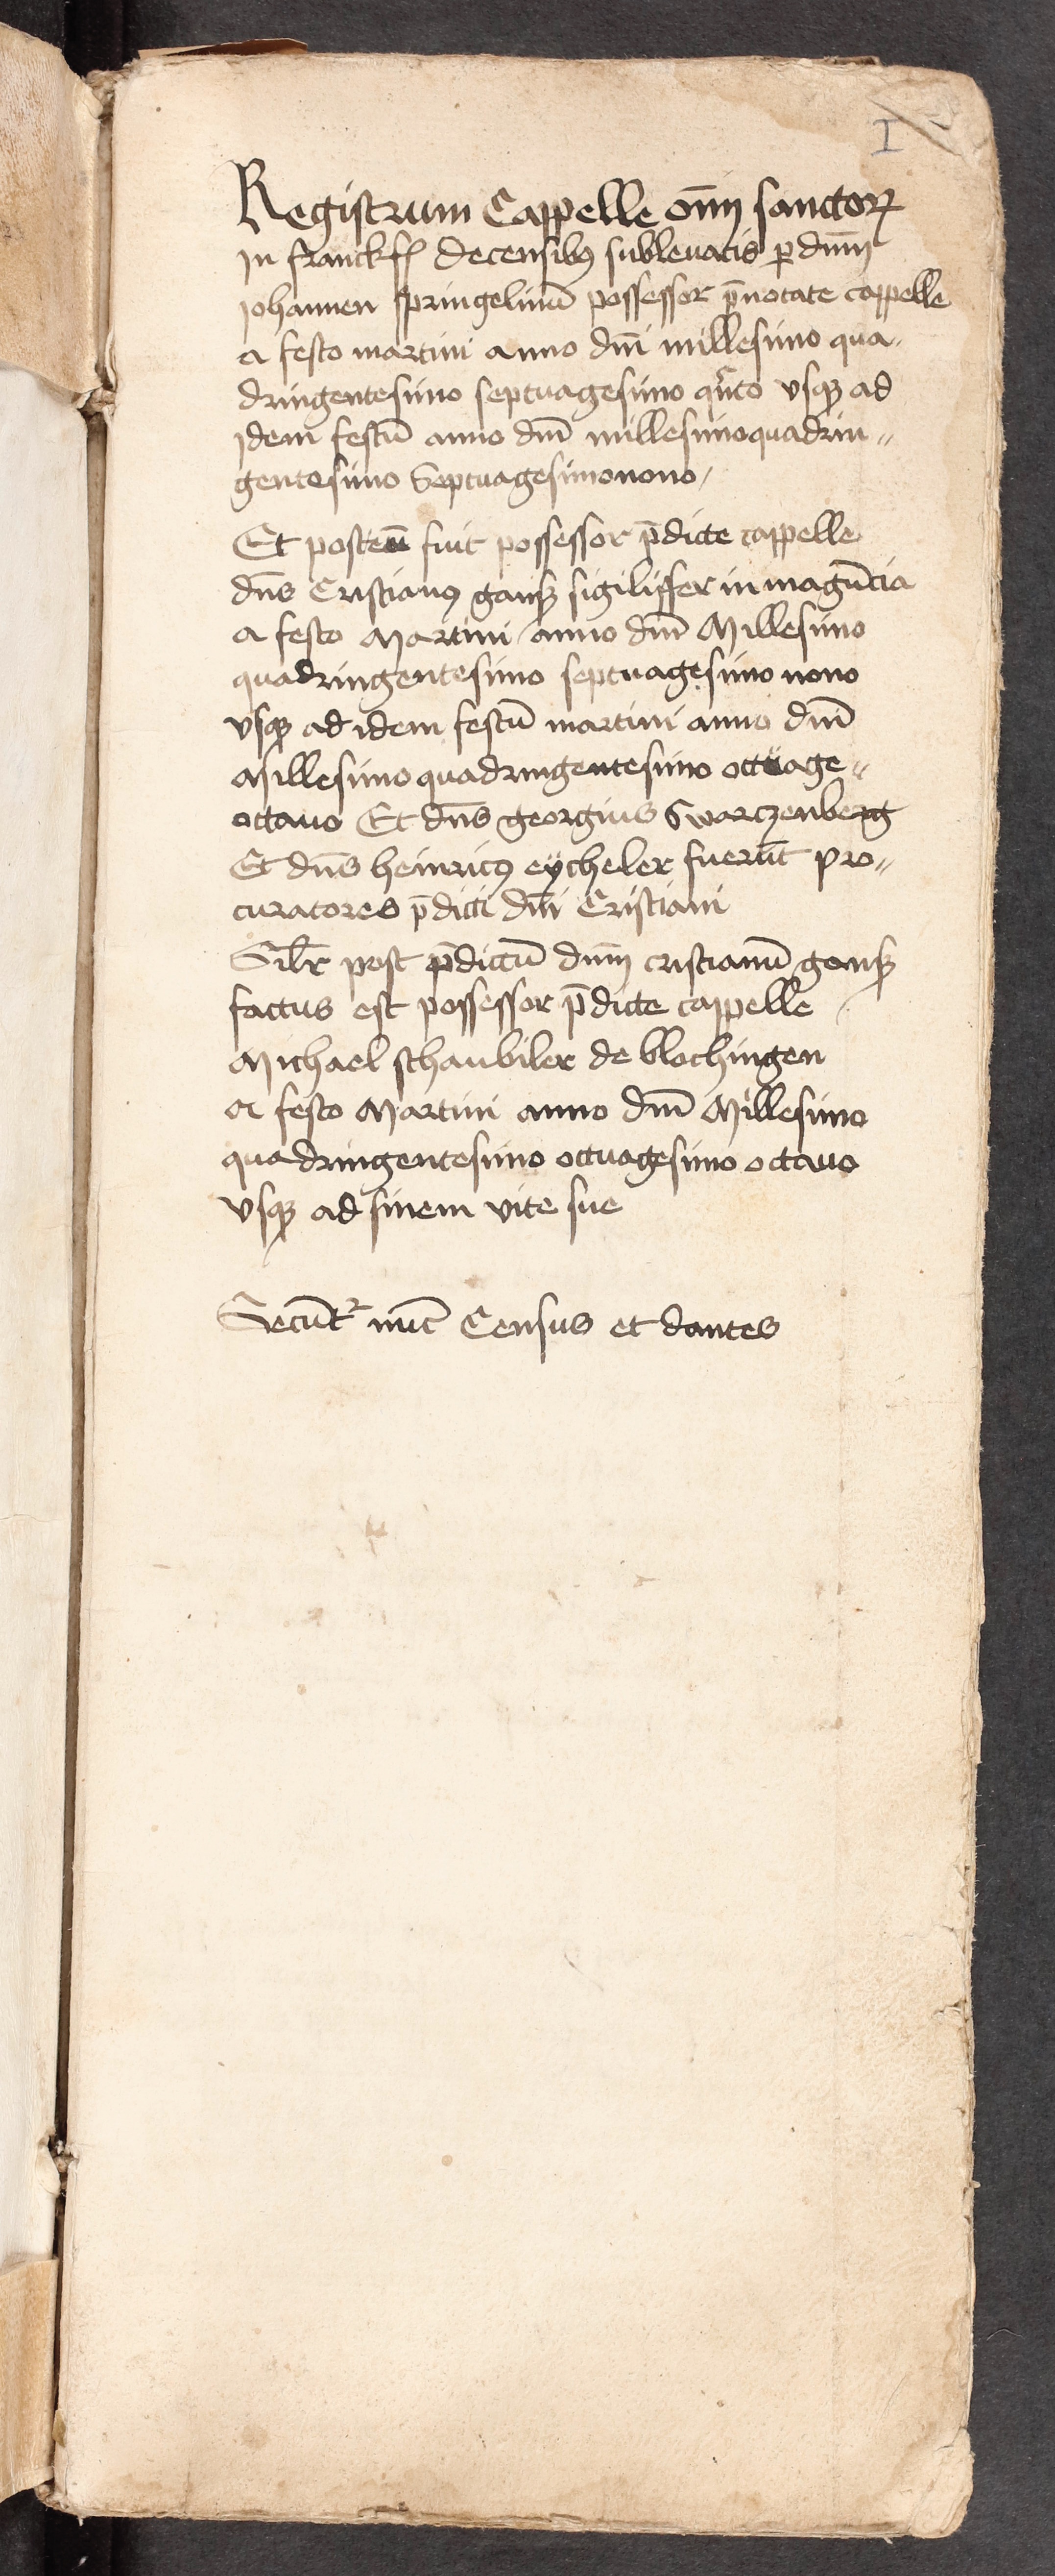 I
Registrum Cappelle om̄ī sanctoꝝ
In franckfꝭ decensibꝫ subleuatis ꝑ dnm̄
Johannen springelinū possessor p̄notate cappelle
a festo martini anno dnī millesimo qua„
dringentesimo septuagesimo qͣrto vsqꝫ ad
idem festū anno dnī millesimoquadrin„
gentesimo Septuagesimonono/
Et posteū fuit possessor p̄dicte cappelle
dn̄s Cristianꝰ ganß sigiliffer in magūcia
a festo Martini anno dnī Millesimo
quadringentesimo septuagesimo nono
vsqꝫ ad idem festū martini anno dnī
Millesimo quadringentesimo octuage„
octauo Et dn̄s georgius Swarczenberg
Et dn̄s heinricꝰ eÿcheler fuerūt pro„
curatores p̄dicti dnī Cristiani
Silr̄ post p̄dictū dnm̄ cristianū ganß
factus est possessor p̄dicte cappelle
Michael schaubiler de blochingen
a festo Martini anno dnī Millesimo
quadringentesimo octuagesimo octauo
vsqꝫ ad finem vite sue
Secūt᷑ nūc Census et dantes